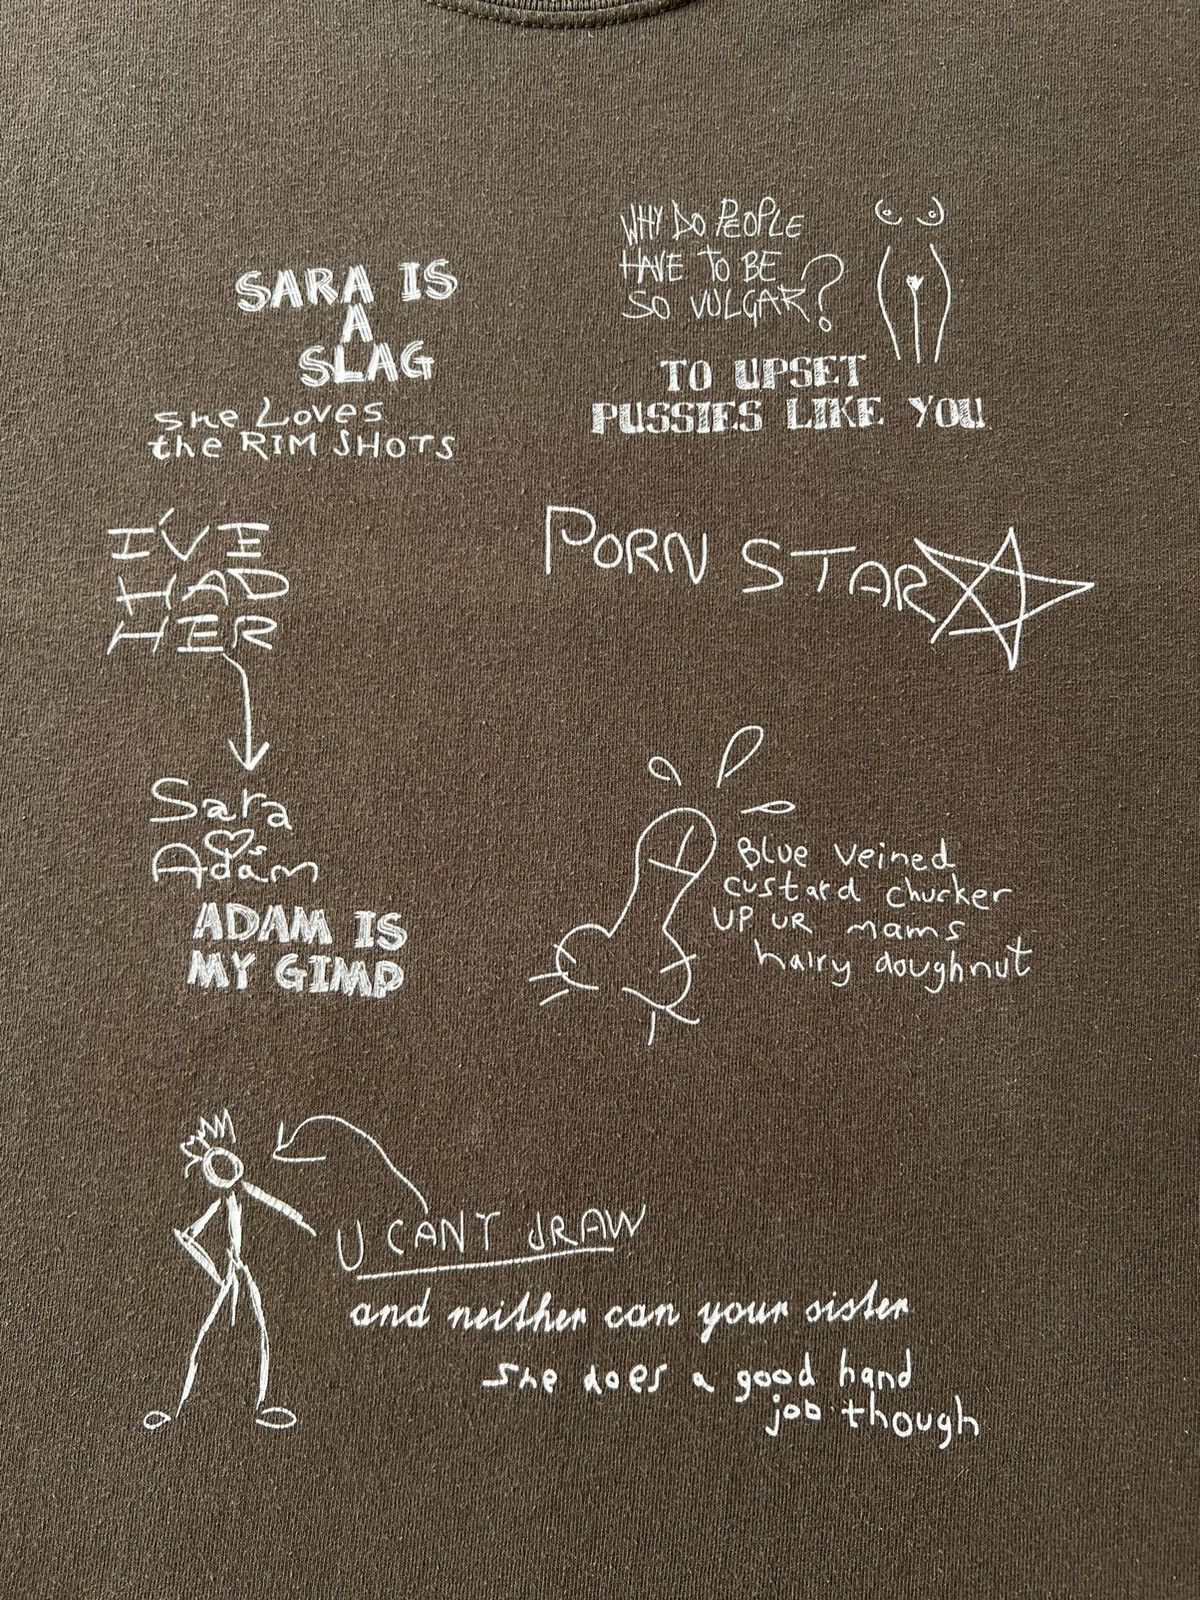 SARA IS
A
SLAG
she Loves
the RIM SHOTS
WHY DO PEOPLE
HAVE TO BE
SO VULGAR?
TO UPSET
PUSSIES LIKE YOU
I'VE
HAD
HER
PORN STAR
Sara
♡s
Adam
ADAM IS
MY GIMP
Blue veined
custard chucker
UP UR mams
hairy doughnut
U CANT DRAW
and neither can your sister
she does a good hand
job though